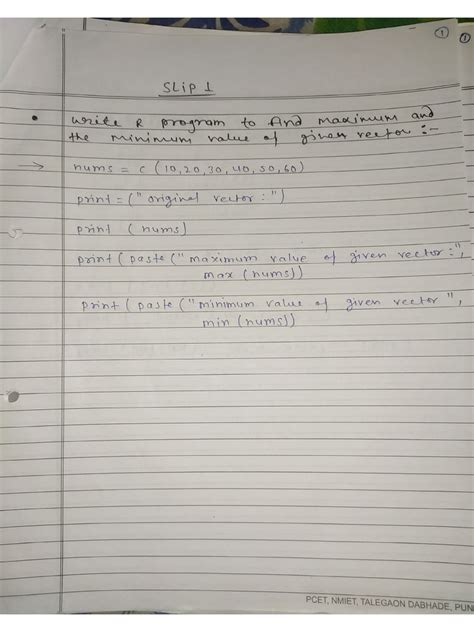 1
1
SLip 1
• write R program to find maximum and
the minimum value of given vector :-
→ nums = c (10,20,30,40,50,60)
print = (" original vector : ")
print (nums)
print ( paste (" maximum value of given vector :",
max (nums))
print ( paste ("minimum value of given vector ",
min (nums))
PCET, NMIET, TALEGAON DABHADE, PUN